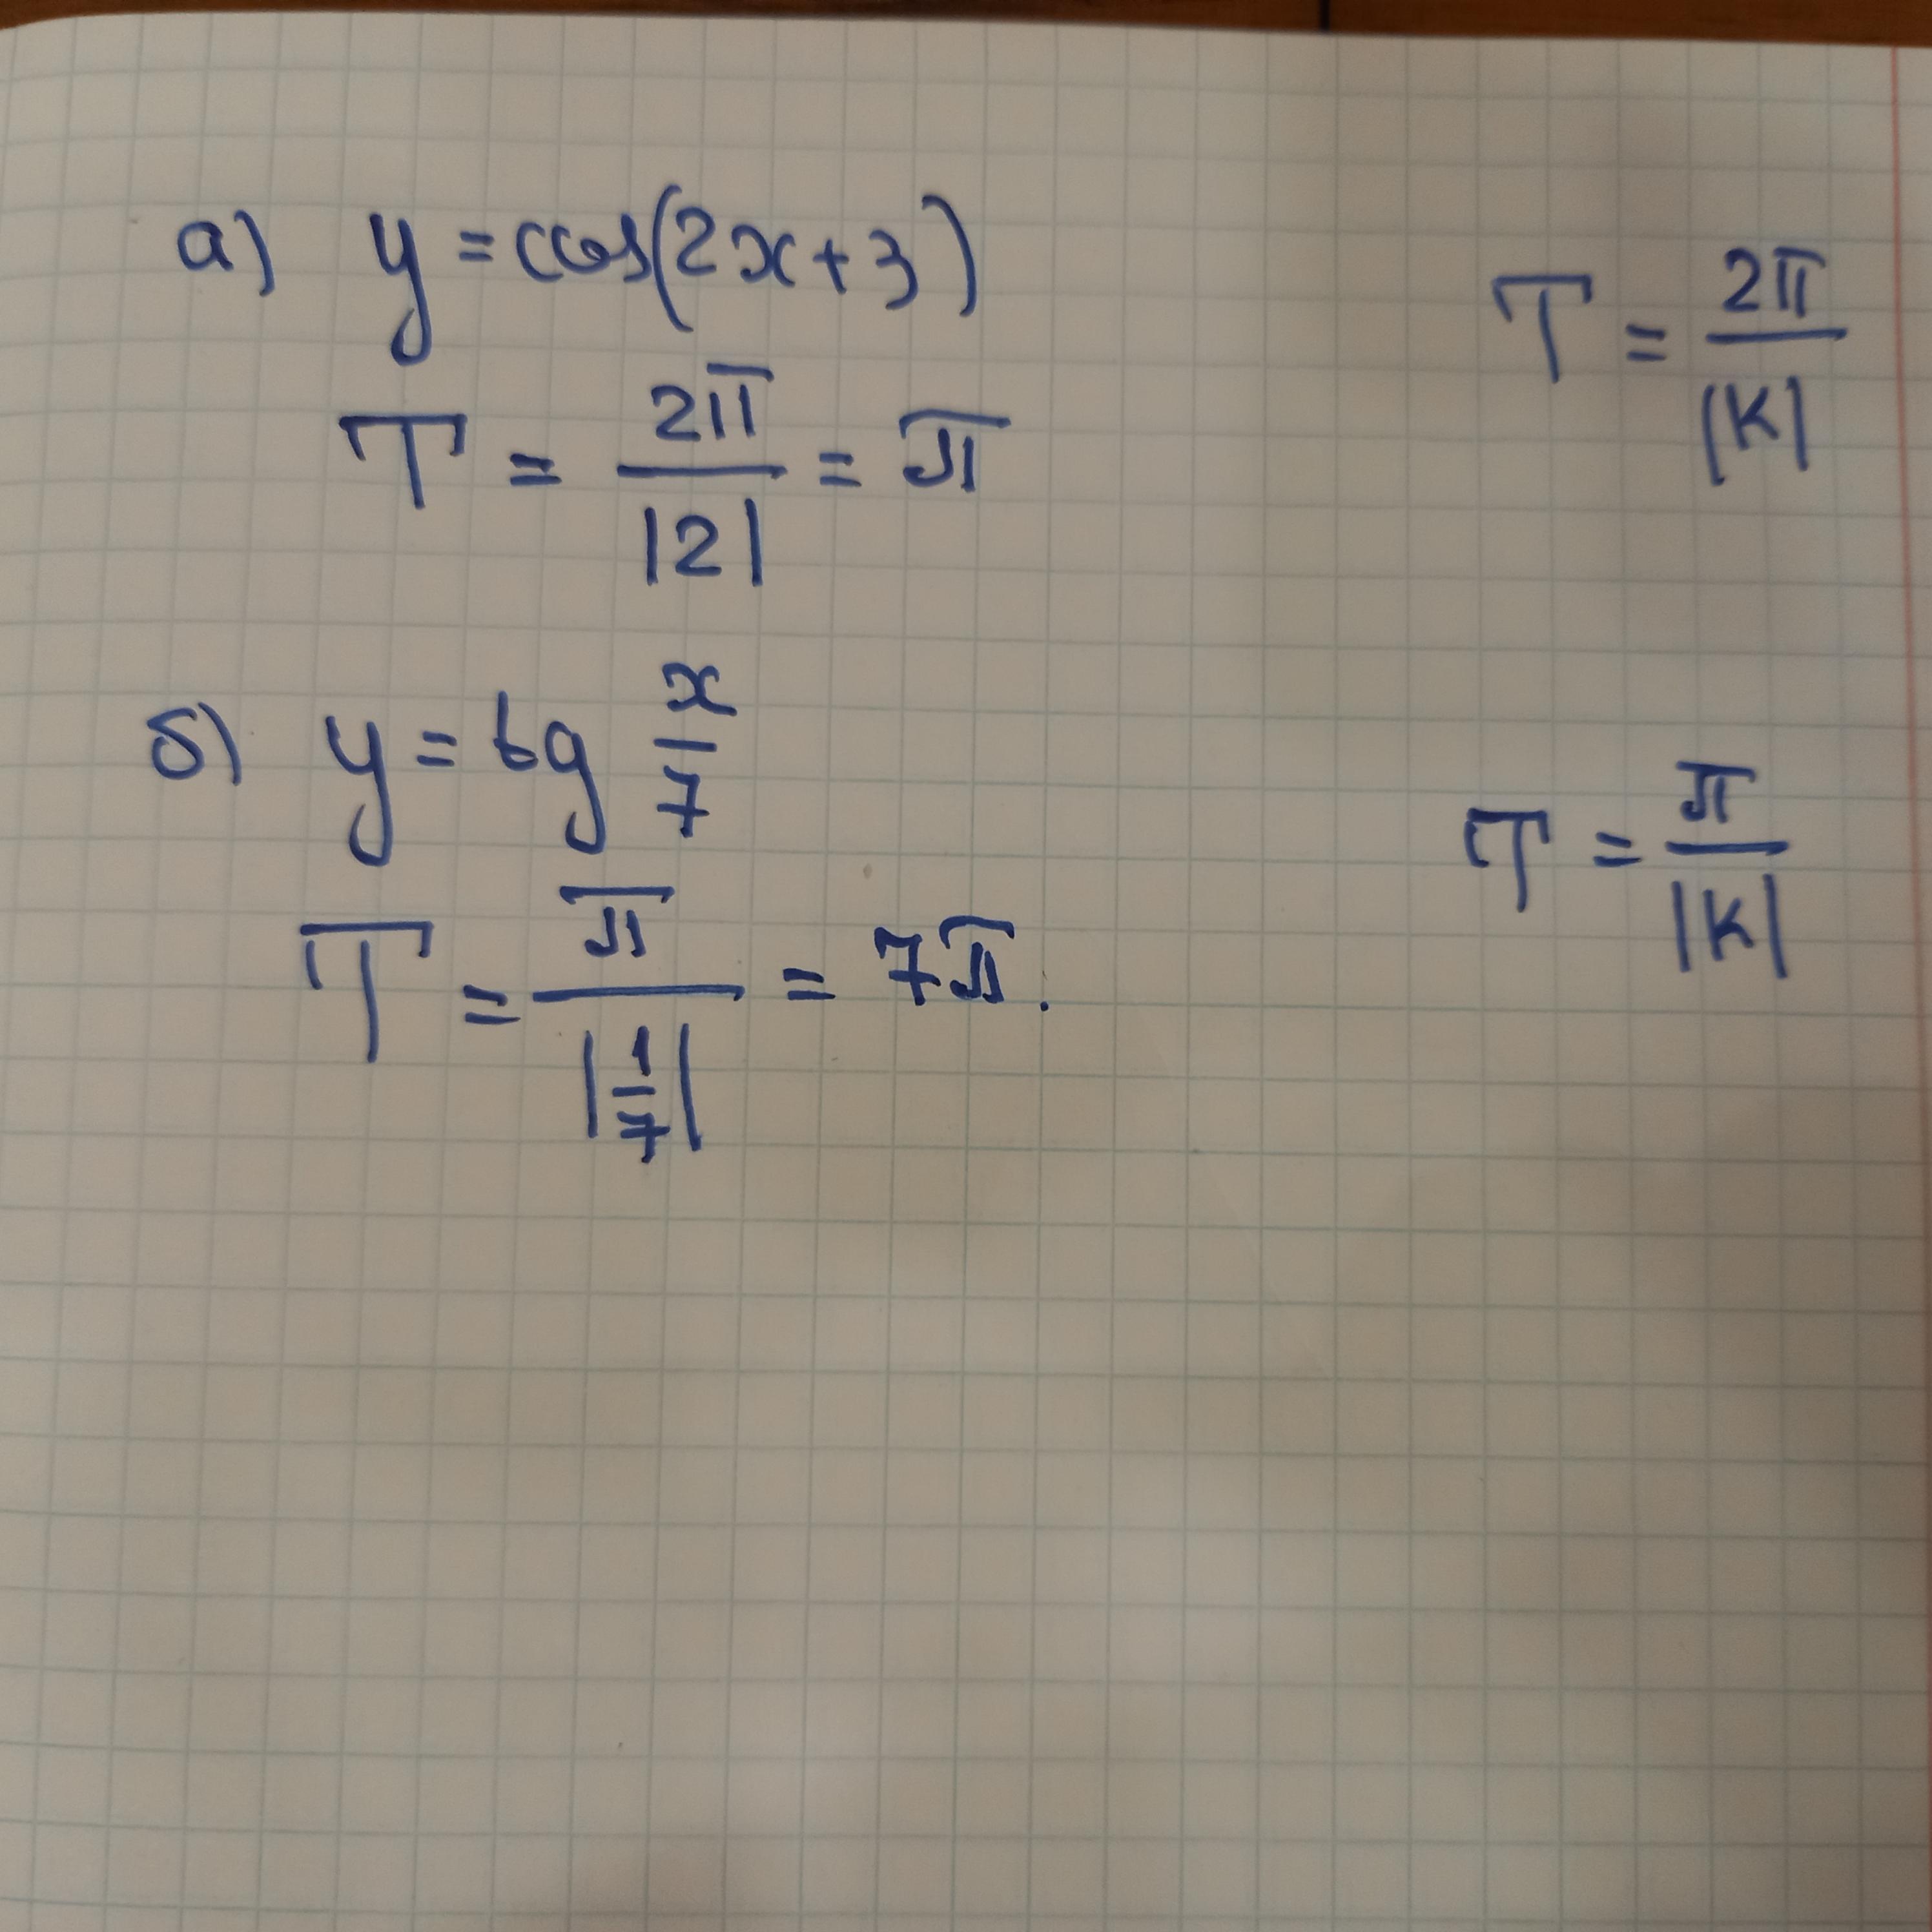 а) y = cos(2x+3)
T = 2π/|2| = π
T = 2π/|K|
б) y = tg x/7
T = π/|1/7| = 7π.
T = π/|K|